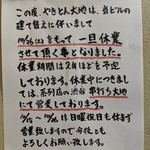 この度、やきとん大地は、当ビルの
建て替えに伴いまして
10/26(土)をもって一旦休業
させて頂く事となりました。
休業期間は2年ほどを予定
しております。休業中につきまし
ては、系列店の渋谷 串打ち大地
にて営業しております。
9/15〜10/26は日曜祝日も休まず
営業致しますので今後とも
よろしくお願い致します。